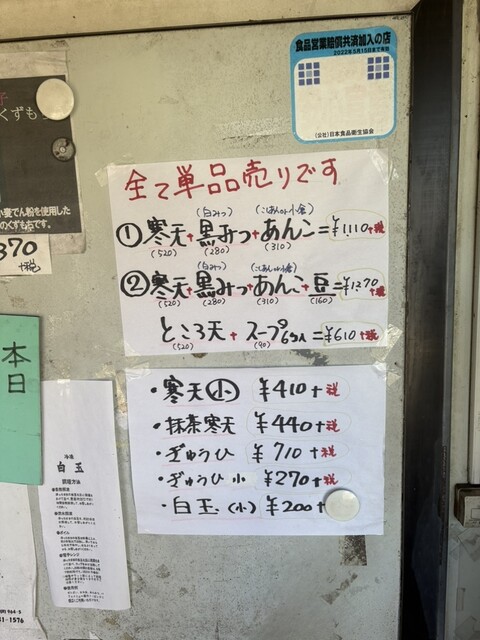 食品営業賠償共済加入の店
2022年5月15日まで有効
(公社)日本食品衛生協会
くずも
小麦でん粉を使用した
のくずもちです。
370
+税
本日
全て単品売りです
(白みつ) (こしあんor小倉)
①寒天+黒みつ+あんこ=¥1,110+税
(520) (280) (310)
(白みつ) (こしあんor小倉)
②寒天+黒みつ+あんこ+豆=¥1270+税
(520) (280) (310) (160)
ところ天+スープ6ヶ入=¥610+税
(520) (90)
・寒天小 ¥410+税
・抹茶寒天 ¥440+税
・ぎゅうひ ¥710+税
・ぎゅうひ小 ¥270+税
・白玉(小) ¥200+
冷凍
白玉
調理方法
1-1576